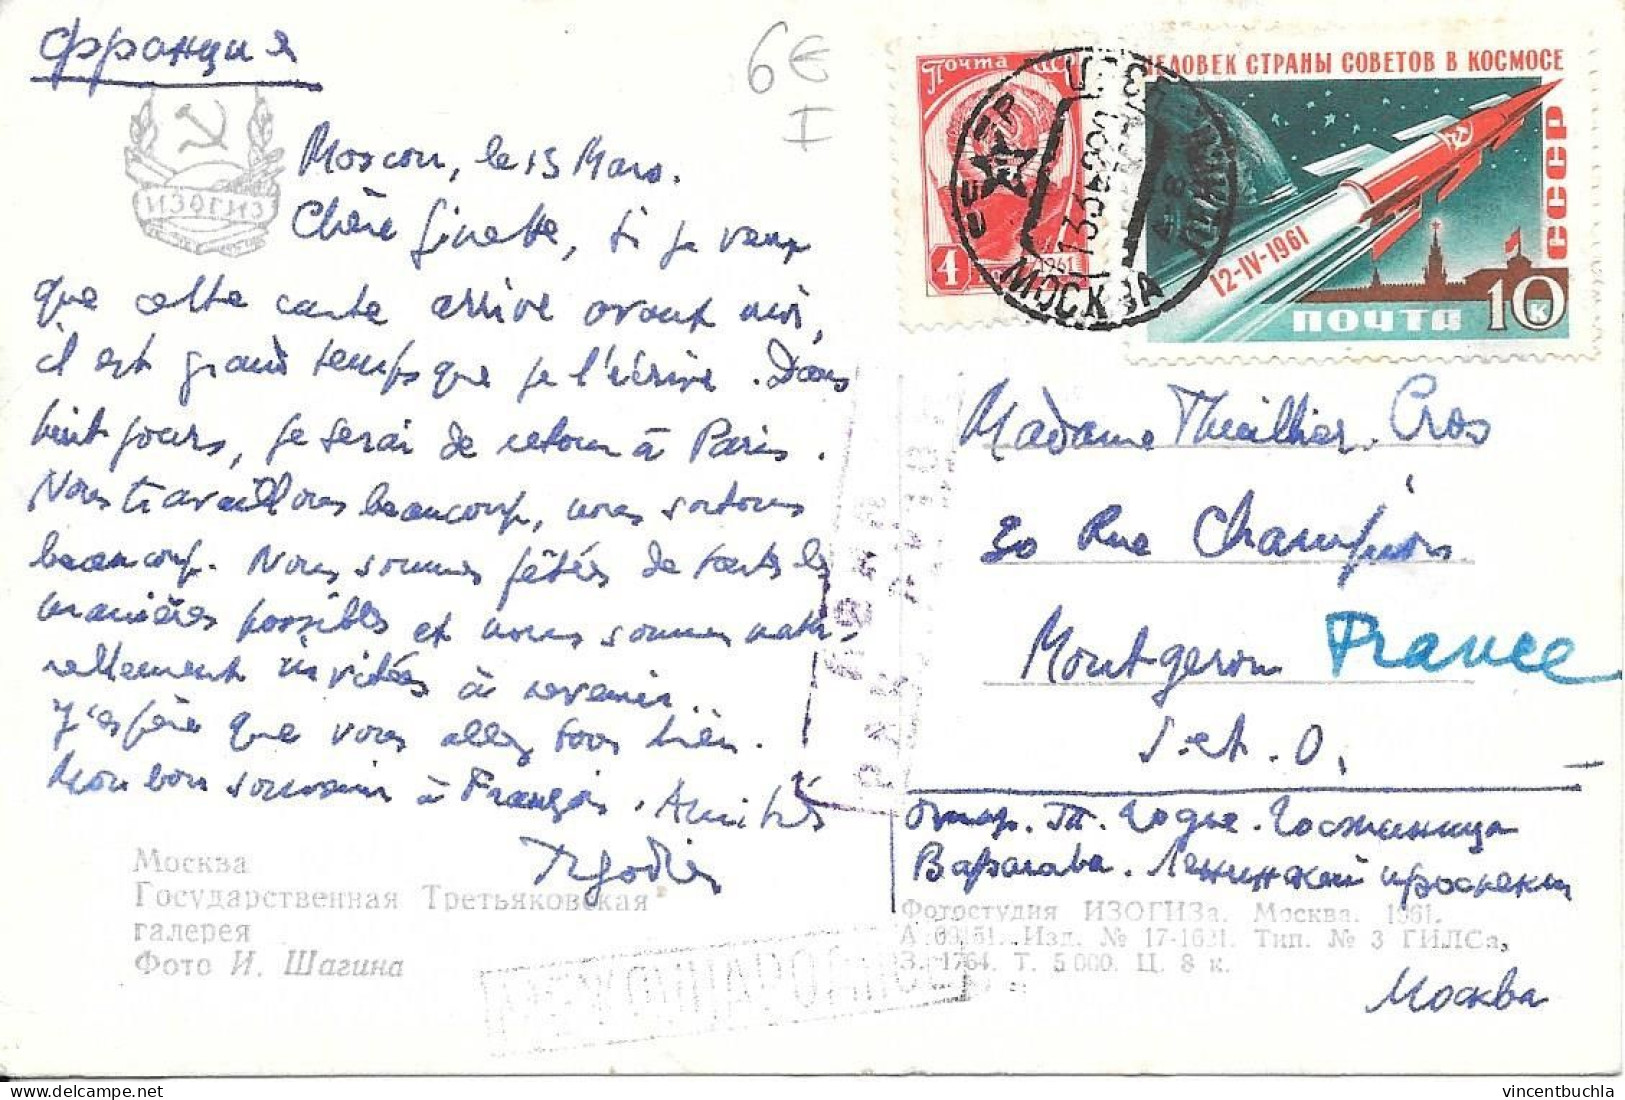 Франция
6€
I
ИЗОГИЗ
Moscou, le 13 Mars.
Chère Ginette, si je veux
que cette carte arrive avant moi,
il est grand temps que je l'écrive. Dans
huit jours, je serai de retour à Paris.
Nous travaillons beaucoup, nous sortons
beaucoup. Nous sommes fêtés de toutes les
manières possibles et nous sommes natu-
rellement invités à revenir..
J'espère que vous allez tous bien.
Mon bon souvenir à François. Amitiés
Москва
Государственная Третьяковская
галерея
Фото И. Шагина
МЕЖДУНАРОДНОЕ
Почта СССР
4
1961
МОСКВА
ЧЕЛОВЕК СТРАНЫ СОВЕТОВ В КОСМОСЕ
СССР
12-IV-1961
ПОЧТА
10 К
АВИА
PAR AVION
Madame Theillier-Cros
20 Rue Champion
Montgeron France
S. et. O.
Отпр. Т. Годье. Гостиница
Варшава. Ленинский проспект
Москва
Фотостудия ИЗОГИЗа. Москва. 1961.
Изд. № 17-1621. Тип. № 3 ГИЛСа,
З. 1764. Т. 5 000. Ц. 8 к.
vincentbuchla